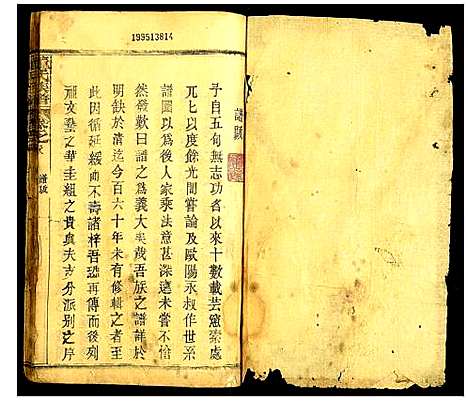 199513814
譜跋
予自五旬無志功名以來十數載芸窓索處
兀以度餘光間嘗論及歐陽永叔作世系
譜圖以為後人家乘法意甚深遠未嘗不愴
然發歎曰譜之為義大矣哉吾族之譜詳於
明缺於清迄今百六十年未有修輯之者至
此因循延緩而不壽諸梓吾恐再傳而後列
之華圭組之貴與夫古分派別之序
氏族譜
譜跋